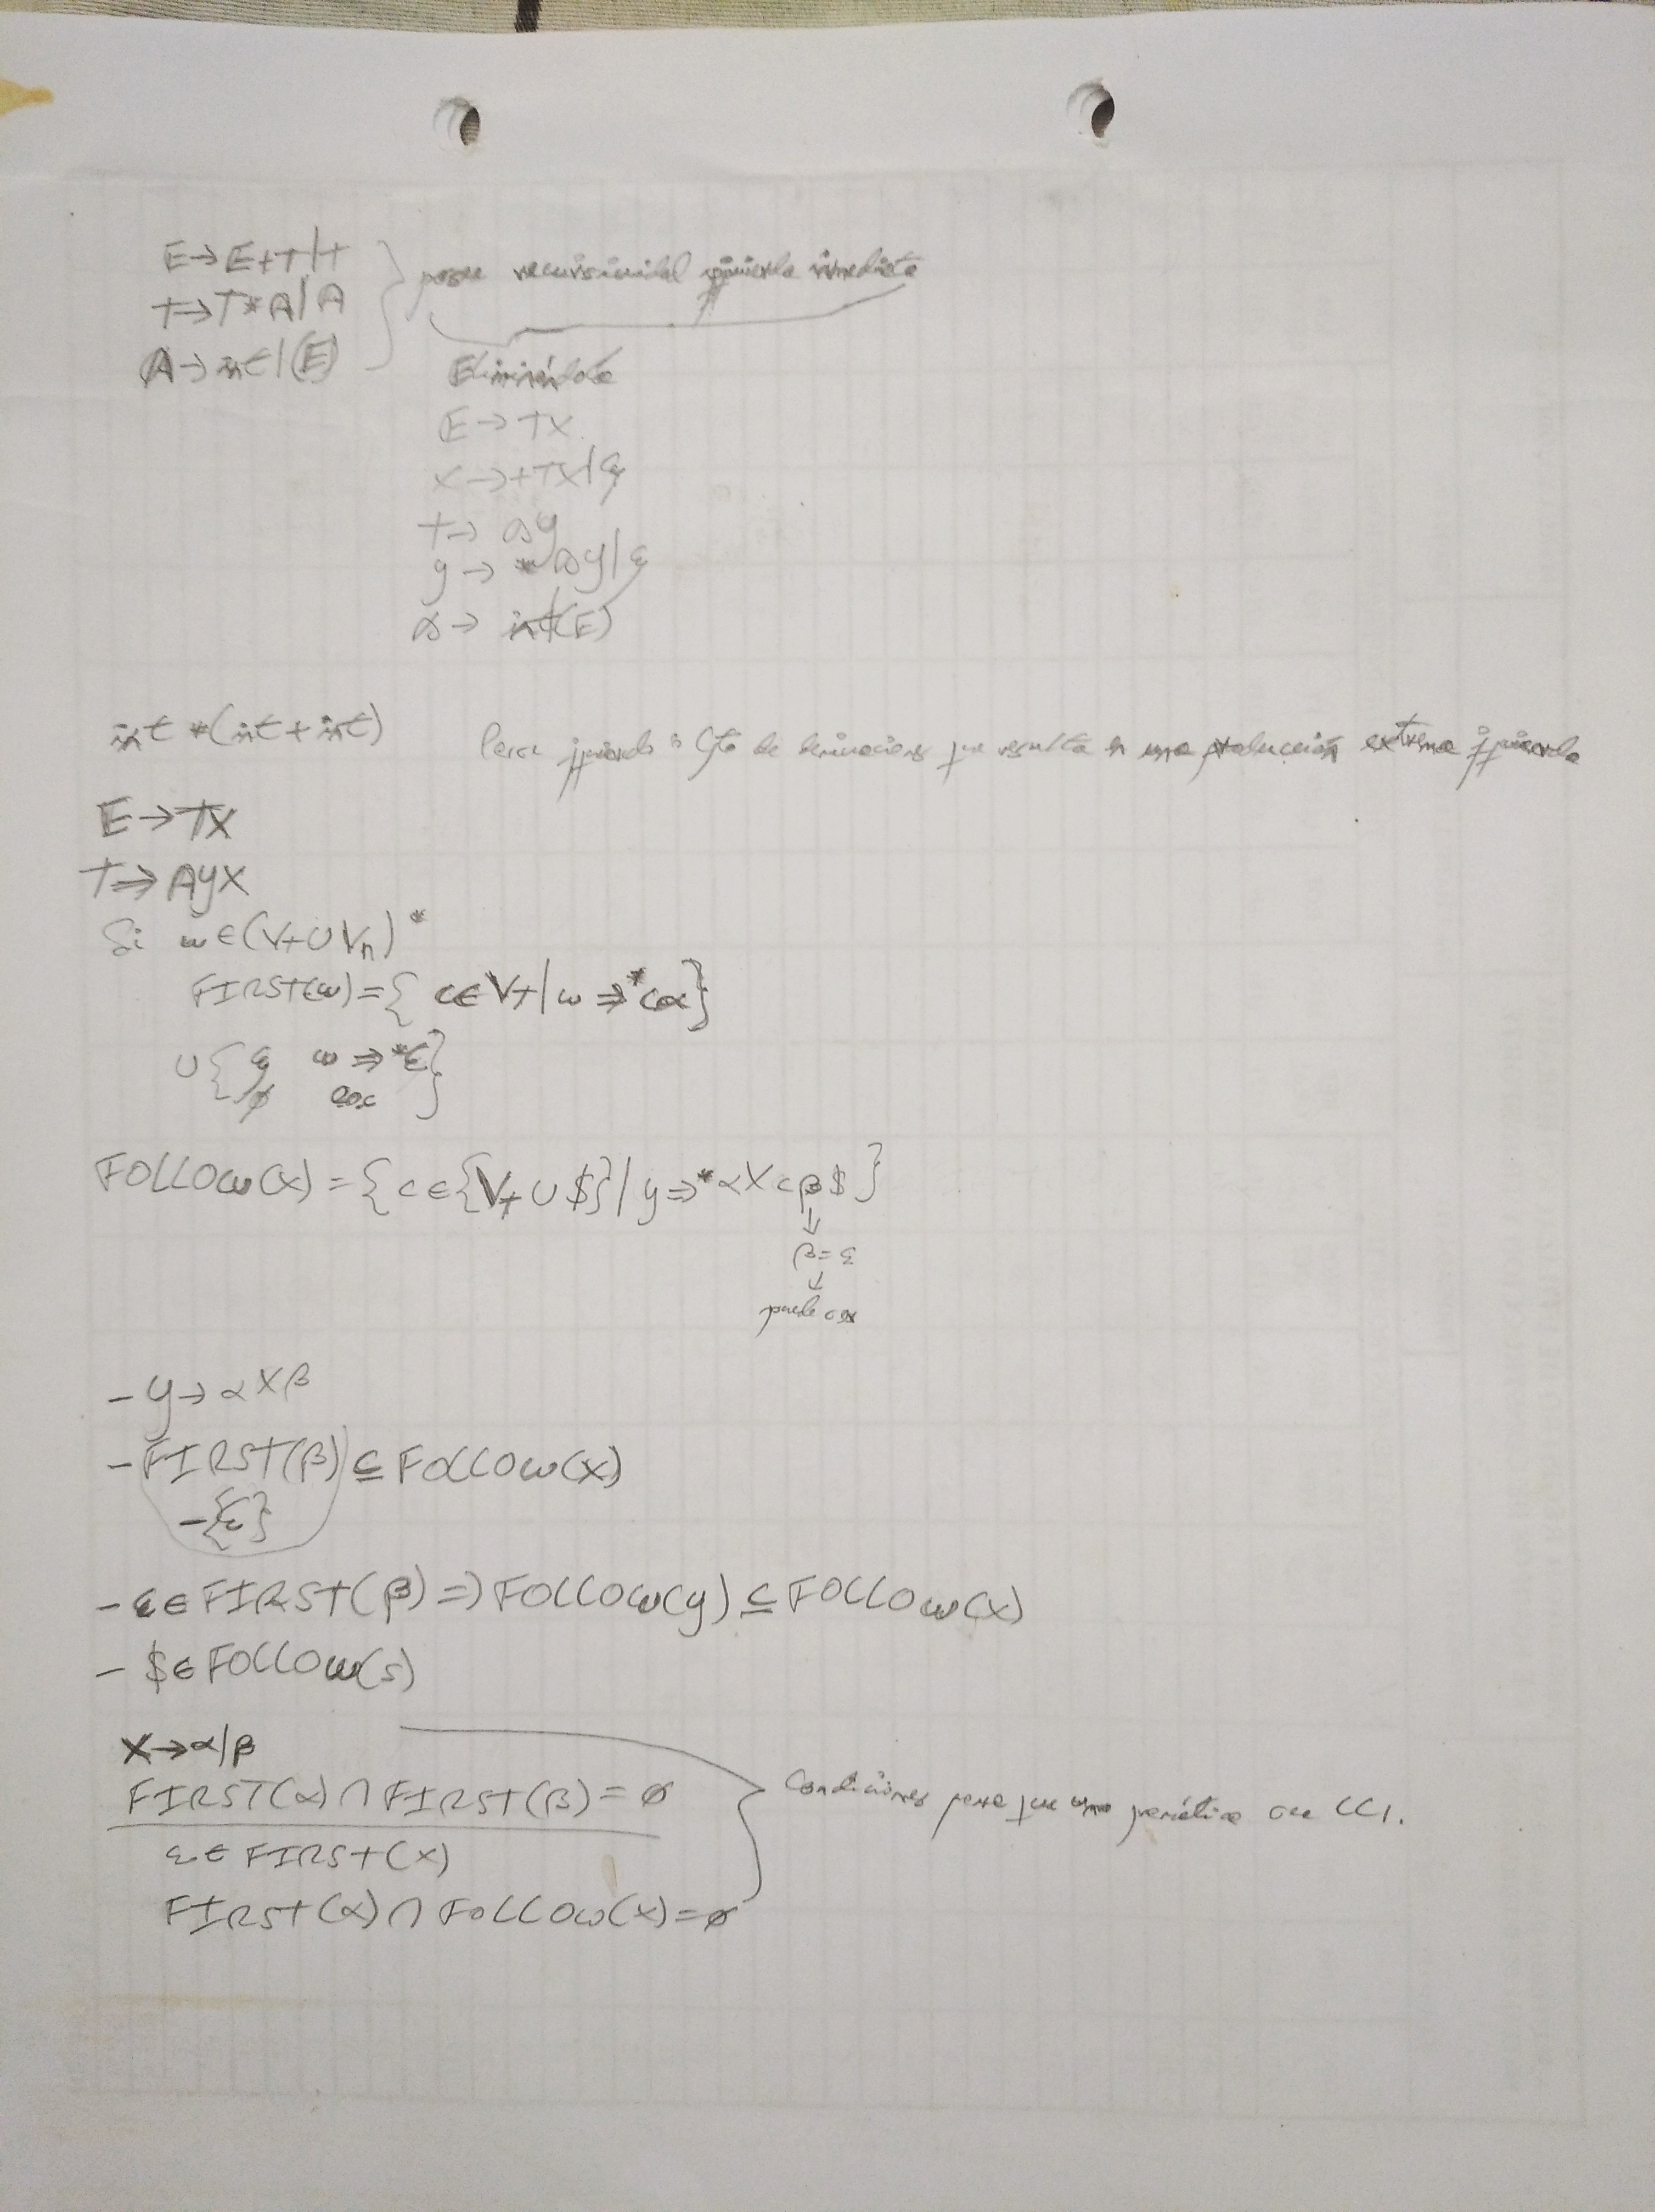 E → E+T | T
T → T*A | A
A → int | (E)
posee recursividad izquierda inmediata
Eliminándola
E → TX
X → +TX | ε
T → AY
Y → *AY | ε
A → int | (E)
int * (int + int)
izquierdo: de derivaciones que resulta en una producción extrema izquierda
E → TX
T ⇒ AYX
Si ω ∈ (VT ∪ Vn)*
FIRST(ω) = { c ∈ VT | ω ⇒* cα }
∪ { ε ω ⇒* ε }
∅ eoc
FOLLOW(X) = { c ∈ {VT ∪ $} | y ⇒* αXcβ$ }
↓
β = ε
↓
puede
- Y → αXβ
- FIRST(β) ⊆ FOLLOW(X)
- {ε}
- ε ∈ FIRST(β) ⇒ FOLLOW(Y) ⊆ FOLLOW(X)
- $ ∈ FOLLOW(S)
X → α | β
FIRST(α) ∩ FIRST(β) = ∅
ε ∈ FIRST(X)
FIRST(α) ∩ FOLLOW(X) = ∅
Condiciones para que una gramática sea LL1.